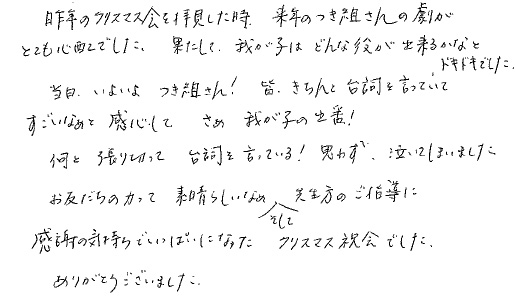 昨年のクリスマス会を拝見した時、来年のつき組さんの劇が
とても心配でした、果たして、我が子はどんな役が出来るかなと
ドキドキでした。
当日、いよいよつき組さん! 皆、きちんと台詞を言っていて
すごいなぁと感心して さぁ 我が子の出番!
何と張り切って 台詞を言っている! 思わず、泣いてしまいました
お友だちの力って 素晴らしいなぁ 先生方のご指導に
そして
感謝の気持ちでいっぱいになった クリスマス祝会でした、
ありがとうございました